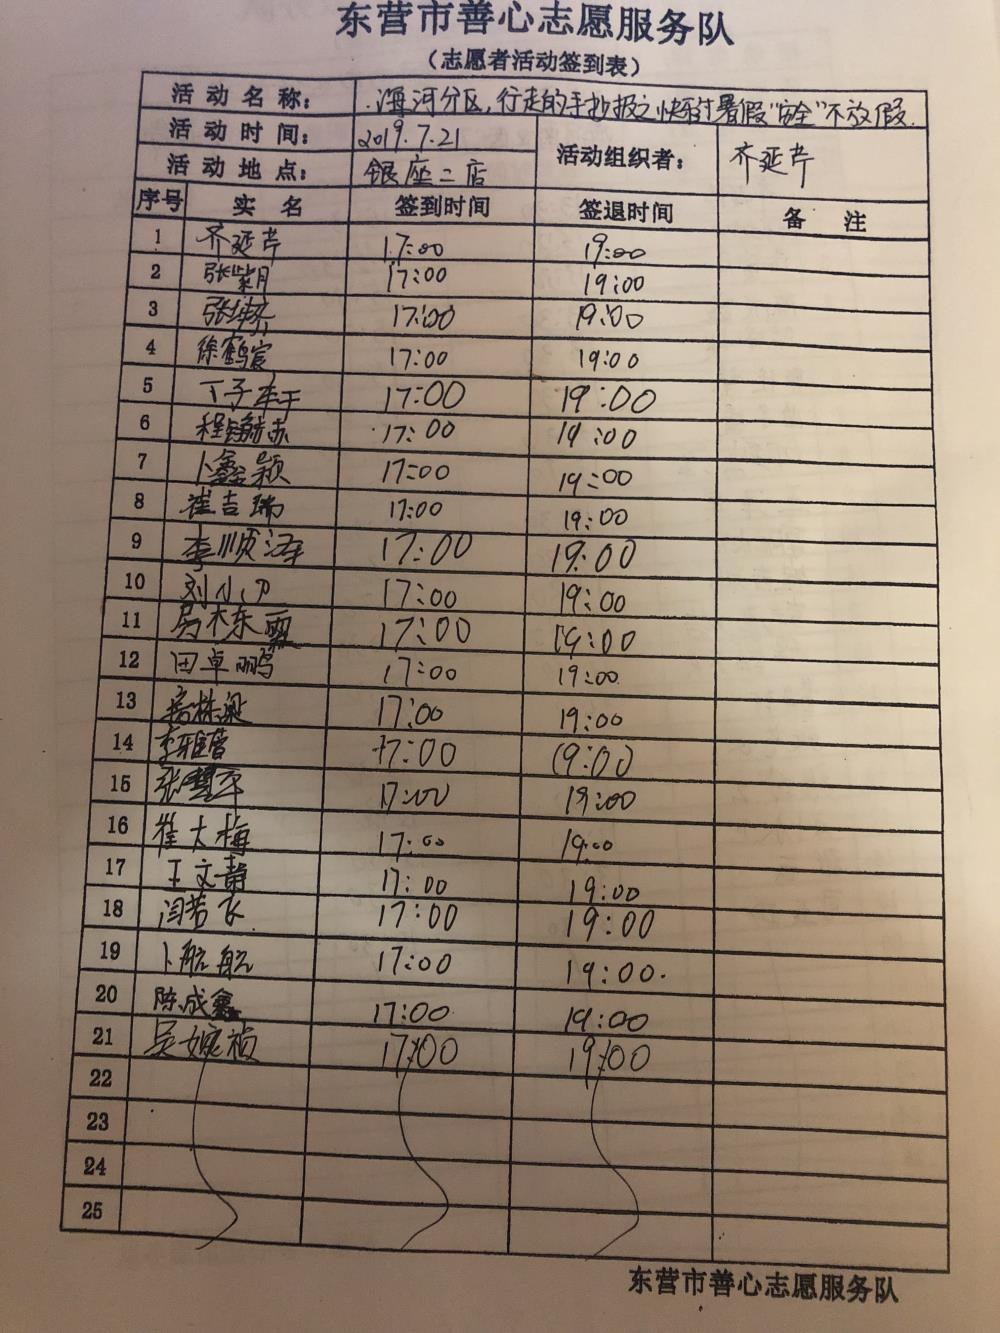 东营市善心志愿服务队
（志愿者活动签到表）
活动名称： 海河分区,行走的手抄报之快乐暑假"安全"不放假.
活动时间： 2019.7.21 活动组织者： 齐延芹
活动地点： 银座二店
序号 实名 签到时间 签退时间 备注
1 齐延芹 17:00 19:00
2 张紫月 17:00 19:00
3 17:00 19:00
4 徐鹤宸 17:00 19:00
5 丁子 17:00 19:00
6 程 17:00 19:00
7 卜鑫颖 17:00 19:00
8 崔吉瑞 17:00 19:00
9 李顺泽 17:00 19:00
10 刘小刀 17:00 19:00
11 东 17:00 19:00
12 田卓鹏 17:00 19:00
13 17:00 19:00
14 李雅萱 17:00 19:00
15 张慧 17:00 19:00
16 崔大梅 17:00 19:00
17 王文静 17:00 19:00
18 闫若飞 17:00 19:00
19 卜航航 17:00 19:00.
20 陈成鑫 17:00 19:00
21 吴婉祯 17:00 19:00
22
23
24
25
东营市善心志愿服务队